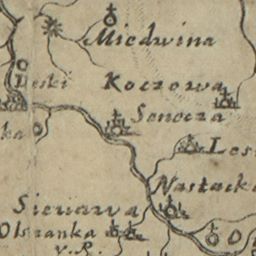 Miedwina
Leski
Koczowa
Senocza
ka
Les
Nastack
Sieniawa
Olszanka
v. R.
O